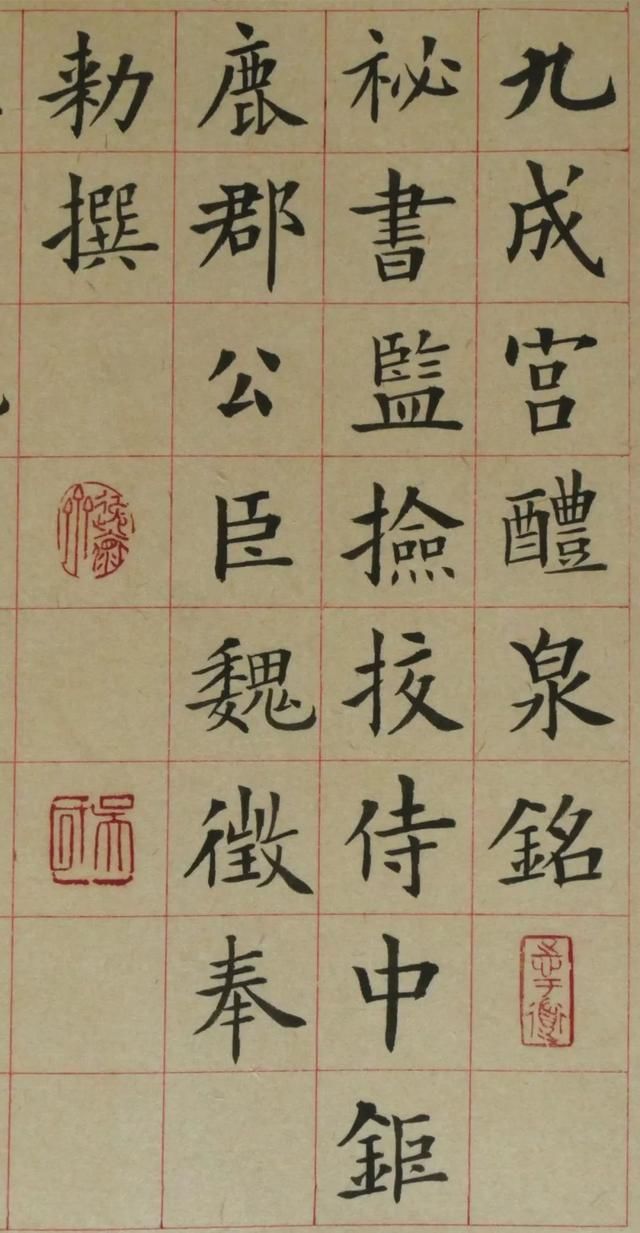 九成宫醴泉銘
祕書監撿挍侍中鉅
鹿郡公臣魏徵奉
勑撰